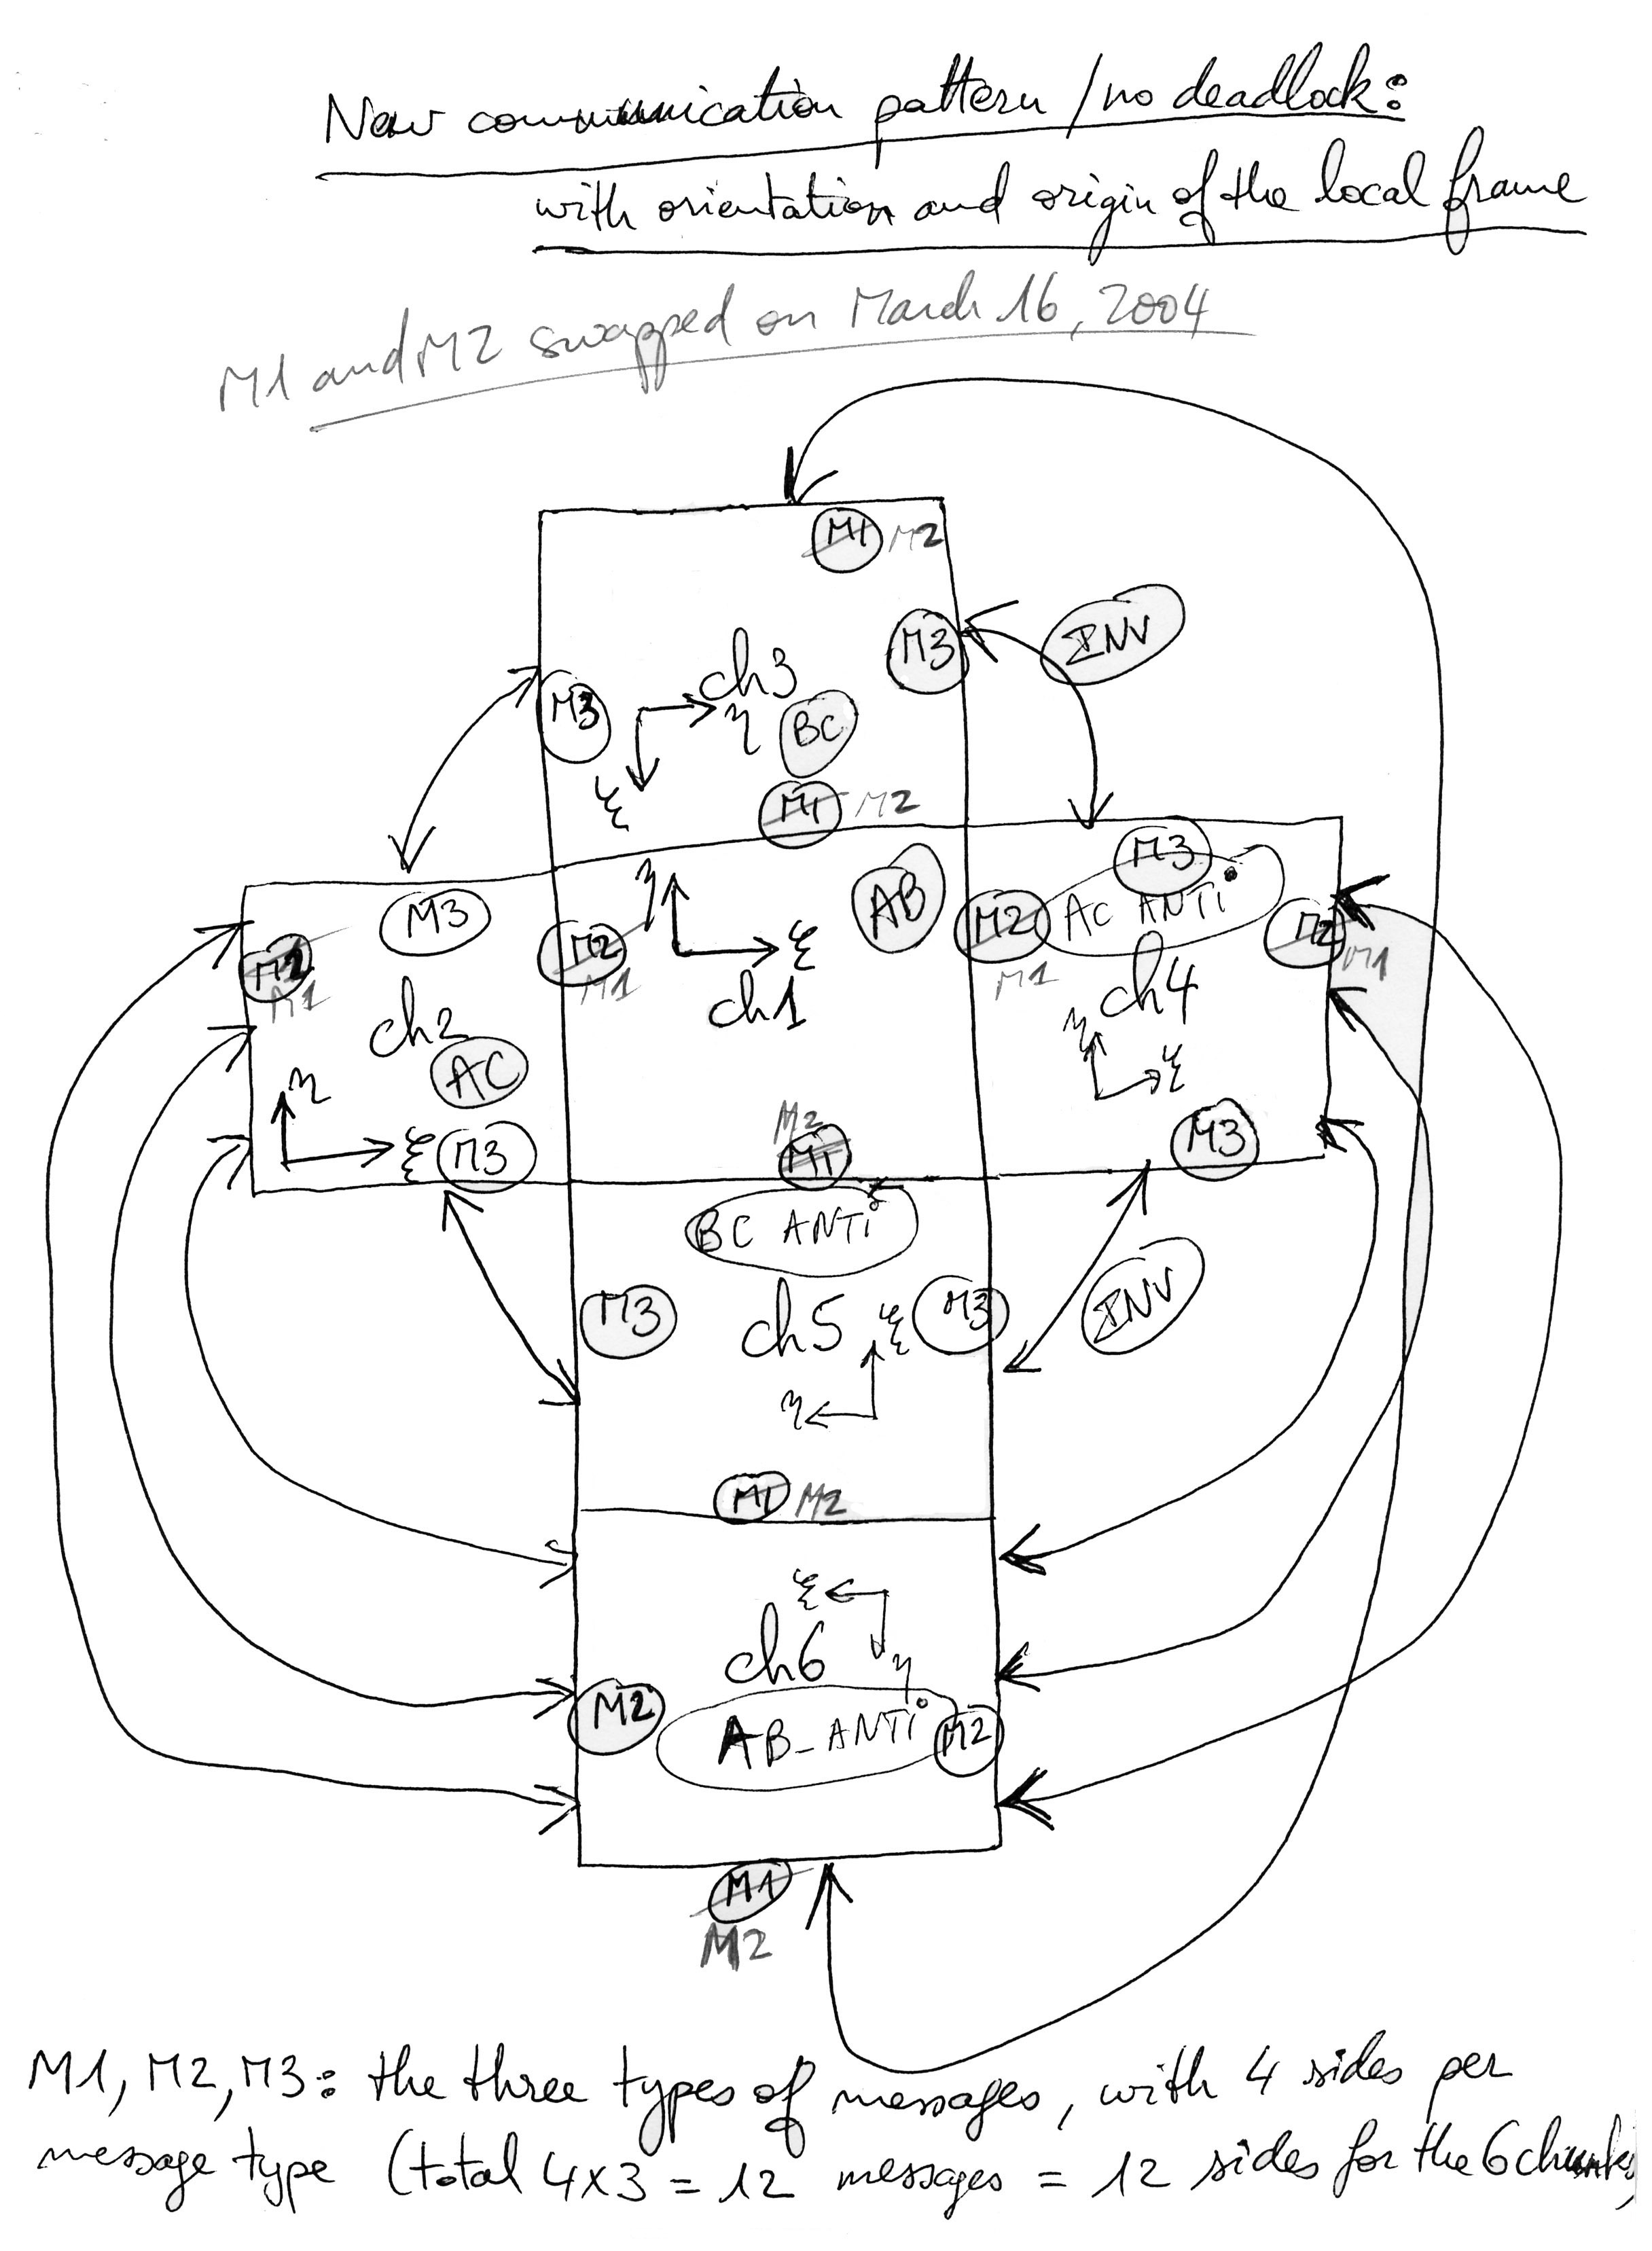 New communication pattern / no deadlock:
with orientation and origin of the local frame
M1 and M2 swapped on March 16, 2004
M1 M2
M3
INV
ch3
M3
η
BC
ξ
M1 M2
M3
η
AB
AC ANTI
M3
M2
M1
M2
M1
ξ
M2
M1
M2
M1
ch2
ch1
ch4
AC
η
ξ
η
ξ
M3
M2
M1
M3
BC ANTI
M3
ch5
ξ
M3
INV
η
M1 M2
ξ
ch6
η
M2
AB_ANTI
M2
M1
M2
M1, M2, M3: the three types of messages, with 4 sides per
message type (total 4x3 = 12 messages = 12 sides for the 6 chunks)